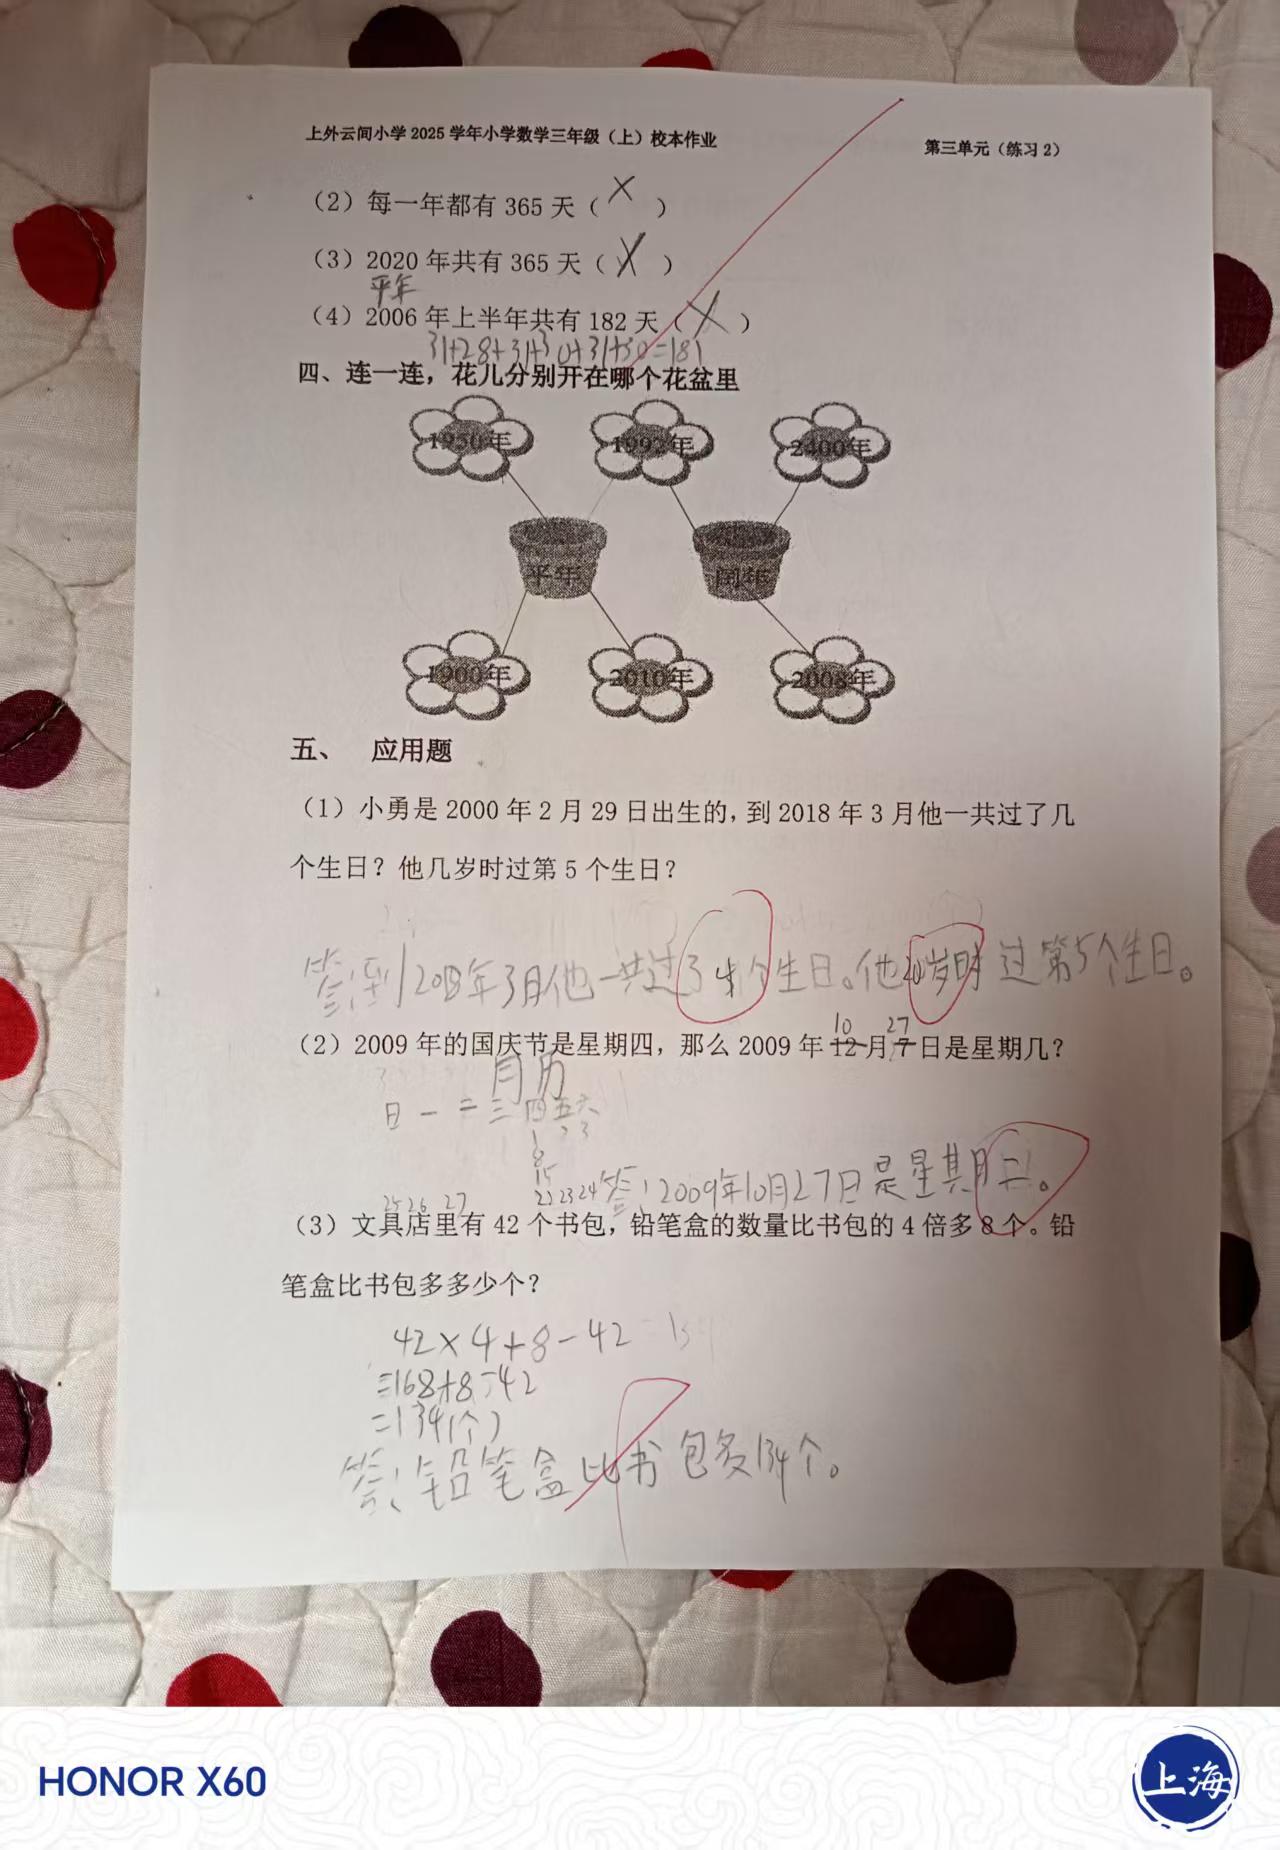 上外云间小学2025学年小学数学三年级（上）校本作业
第三单元（练习2）
（2）每一年都有365天（ × ）
（3）2020年共有365天（ × ）
平年
（4）2006年上半年共有182天（ × ）
31+28+31+30+31+30=181
四、连一连，花儿分别开在哪个花盆里
1950年 1992年 2400年
平年 闰年
1900年 2010年 2008年
五、 应用题
（1）小勇是2000年2月29日出生的，到2018年3月他一共过了几
个生日？他几岁时过第5个生日？
答：到2018年3月他一共过了4个生日。他20岁时过第5个生日。
10 27
（2）2009年的国庆节是星期四，那么2009年12月7日是星期几？
月历
日 一 二 三 四 五 六
1 2 3
8
15
22 23 24 答：2009年10月27日是星期二。
25 26 27
（3）文具店里有42个书包，铅笔盒的数量比书包的4倍多8个。铅
笔盒比书包多多少个？
42×4+8-42
=168+8-42
=134(个)
答：铅笔盒比书包多134个。
HONOR X60
上海